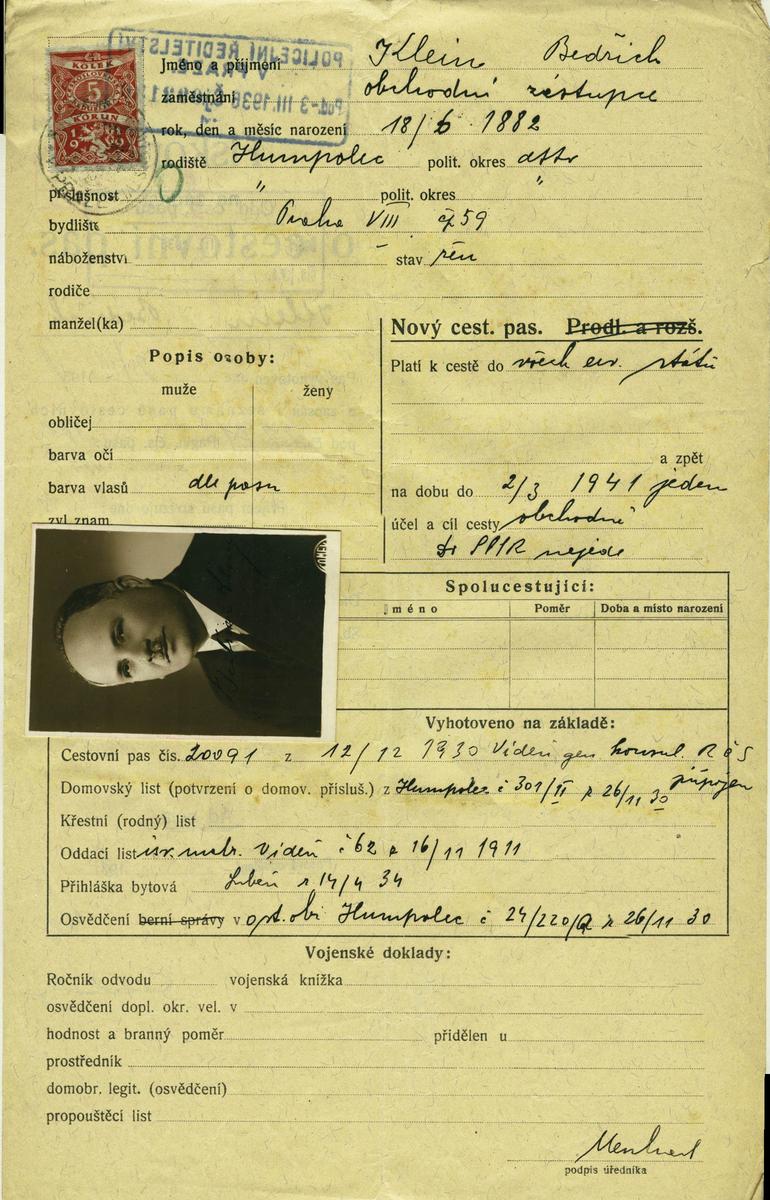 KOLEK
5
KORUN
1919
POLICEJNÍ ŘEDITELSTVÍ
V PRAZE
3 III. 1936
Jméno a příjmení Klein Bedřich
zaměstnání obchodní zástupce
rok, den a měsíc narození 18/6 1882
rodiště Humpolec polit. okres dtto
příslušnost " polit. okres "
bydliště Praha VIII čp 59
náboženství - stav žen
rodiče
manžel(ka)
Nový cest. pas. Prodl. a rozš.
Platí k cestě do všech evr. států
a zpět
na dobu do 2/3 1941 jeden
účel a cíl cesty obchodně
do SSSR nejede
Popis osoby:
muže ženy
obličej
barva očí
barva vlasů dle pasu
zvl. znam.
Spolucestující:
Jméno Poměr Doba a místo narození
Vyhotoveno na základě:
Cestovní pas čís. 20091 z 12/12 1930 Vídeň gen konsul. RČS
připojen
Domovský list (potvrzení o domov. přísluš.) z Humpolec č 301/II z 26/11 30
Křestní (rodný) list
Oddací list isr. matr. Vídeň č 62 z 16/11 1911
Přihláška bytová Libeň z 14/4 34
Osvědčení berní správy v Humpolec č 24/220 z 26/11 30
Vojenské doklady:
Ročník odvodu vojenská knížka
osvědčení dopl. okr. vel. v
hodnost a branný poměr přidělen u
prostředník
domobr. legit. (osvědčení)
propouštěcí list
podpis úředníka